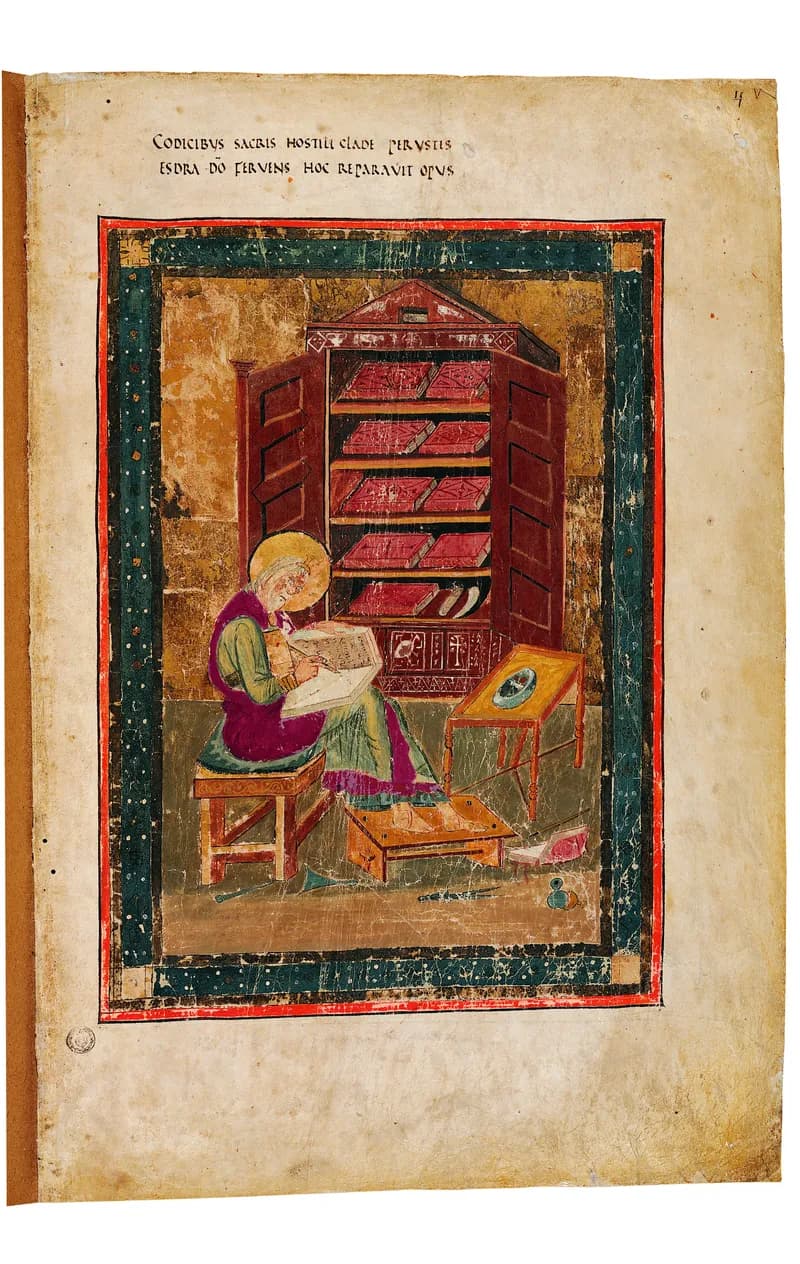 4 V
CODICIBUS SACRIS HOSTILI CLADE PERUSTIS
ESDRA DŌ FERVENS HOC REPARAVIT OPUS